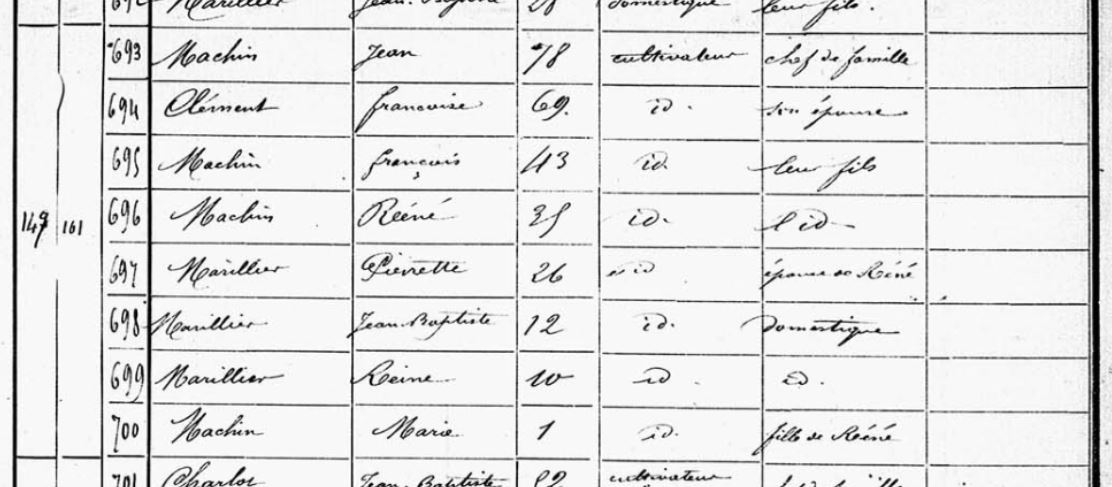 Marillier Jean-Baptiste 28 domestique leur fils.
693 Machin Jean 78 cultivateur chef de famille
694 Clément francoise 69. id. son épouse
695 Machin françois 43 id. leur fils
147 161 696 Machin Réené 35 id. l'id
697 Marillier Pierrette 26 id épouse de Réné
698 Marillier Jean-Baptiste 12 id. domestique
699 Marillier Reine 10 id. id.
700 Machin Marie 1 id. fille de Réené
701 Charlot Jean Baptiste cultivateur